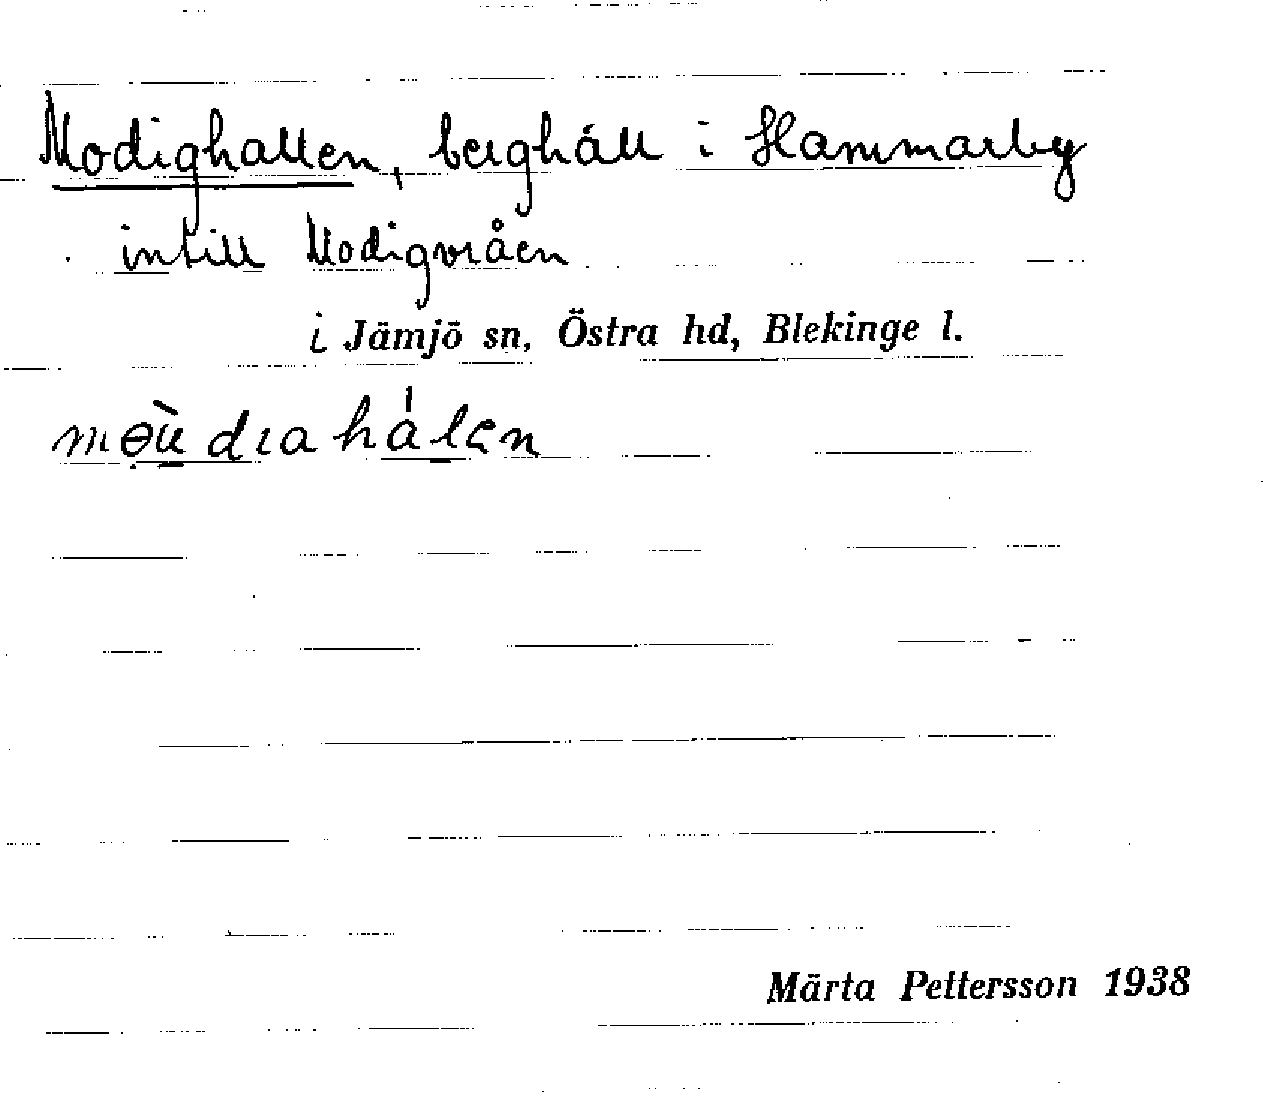 Modighallen, berghäll i Hammarby
intill Modigvråen
i Jämjö sn, Östra hd, Blekinge l.
Märta Pettersson 1938